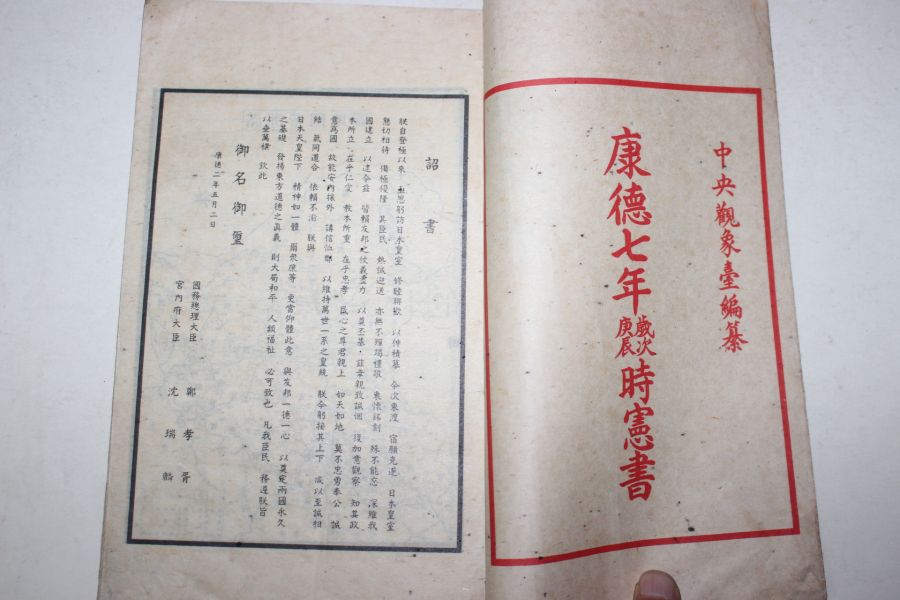 中央觀象臺編纂
康德七年歲次庚辰時憲書
詔書
朕自登極以來 亟思躬訪日本皇室 修睦聯歡 以伸積慕 今次東渡 宿願克遂 日本皇室
懇切相待 備極優隆 其臣民 熱誠迎送 亦無不殫竭禮敬 衷懷銘刻 殊不能忘 深維我
國建立 以達今茲 皆賴友邦之仗義盡力 以奠丕基 茲幸親致誠悃 復加意觀察 知其政
本所立 在乎仁愛 教本所重 在乎忠孝 民心之尊君親上 如天如地 莫不忠勇奉公 誠
意爲國 故能安內攘外 講信恤鄰 以維持萬世一系之皇統 朕今躬接其上下 咸以至誠相
結 氣同道合 依賴不渝 朕與
日本天皇陛下 精神如一體 爾衆庶等 更當仰體此意 與友邦一德一心 以奠定兩國永久
之基礎 發揚東方道德之眞義 則大局和平 人類福祉 必可致也 凡我臣民 務遵朕旨
以垂萬禩 欽此
御名御璽
康德二年五月二日
國務總理大臣 鄭孝胥
宮內府大臣 沈瑞麟